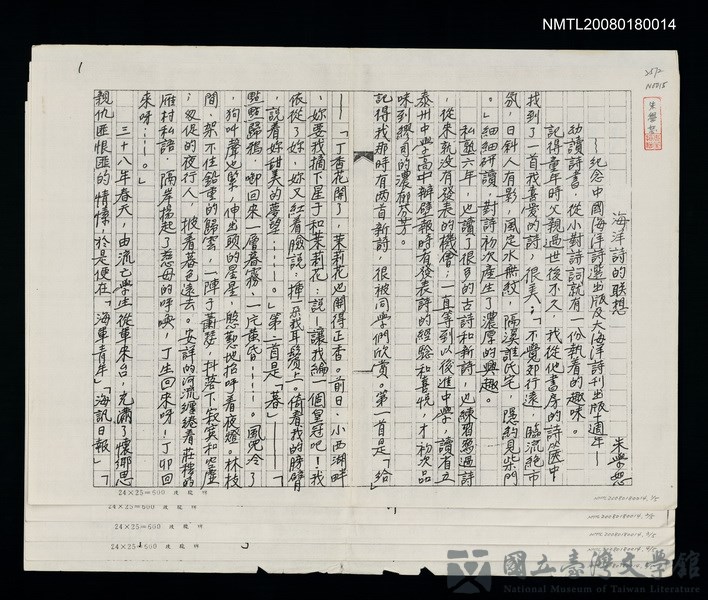 NMTL20080180014
海洋詩的联想
朱學恕
—紀念中國海洋詩選出版及大海洋詩刊出版十週年—
幼讀詩書，從小對詩詞就有一份執着的趣味。
記得童年時父親過世後不久，我從他書房的詩箧中
找到了一首我喜爱的詩，很美：「不覺郊行遠，臨流絶市
氛，日斜人有影，風定水無紋，隔溪誰氏宅，隠約見柴門
。」細細研讀，對詩初次產生了濃厚的興趣。
私塾六年，也讀了很多的古詩和新詩，也練習寫過詩
，從來就没有發表的機會；一直等到以後進中學，讀省立
泰州中學高中辦壁報時有發表詩的經驗和喜悅，才初次品
味到繆司的濃郁芬芳。
記得我那時有两首新詩，很被同學們欣賞。第一首是「給」
—「丁香花開了，茉莉花也開得正香。前日：小西湖畔
，妳要我摘下星子和茉莉花：説—讓我編一個皇冠吧！我
依從了妳，妳又紅着臉説：揷一朶我耳鬢上。倚着我的膀臂
，説着妳甜美的夢望……。」第二首是「暮」—「
點點歸鴉，啣回來一層暮霧，一片黄昏……。風兒冷了
，狗叫聲也緊，伸出頭的星星，慇懃地招呼着夜燈。林枝
間，架不住鉛重的歸雲，一陣子蕭瑟，抖落下寂寞和空虚
；怱促的夜行人，披着暮色遠去。安詳的河流纏绻着莊稼的
雁村私語，隔岸揚起了惹母的呼喚，丁生回來呀！丁卯回
來呀……。」
三十八年春天，由流亡學生從軍來台，充滿了懷鄉思
親仇匪恨匪的情愫，於是便在「海軍青年」「海訊日報」「
1
24×25=600
24×25=600
24×25=600
24×25=600
3
NMTL20080180014
國立臺灣文學館
National Museum of Taiwan Literature